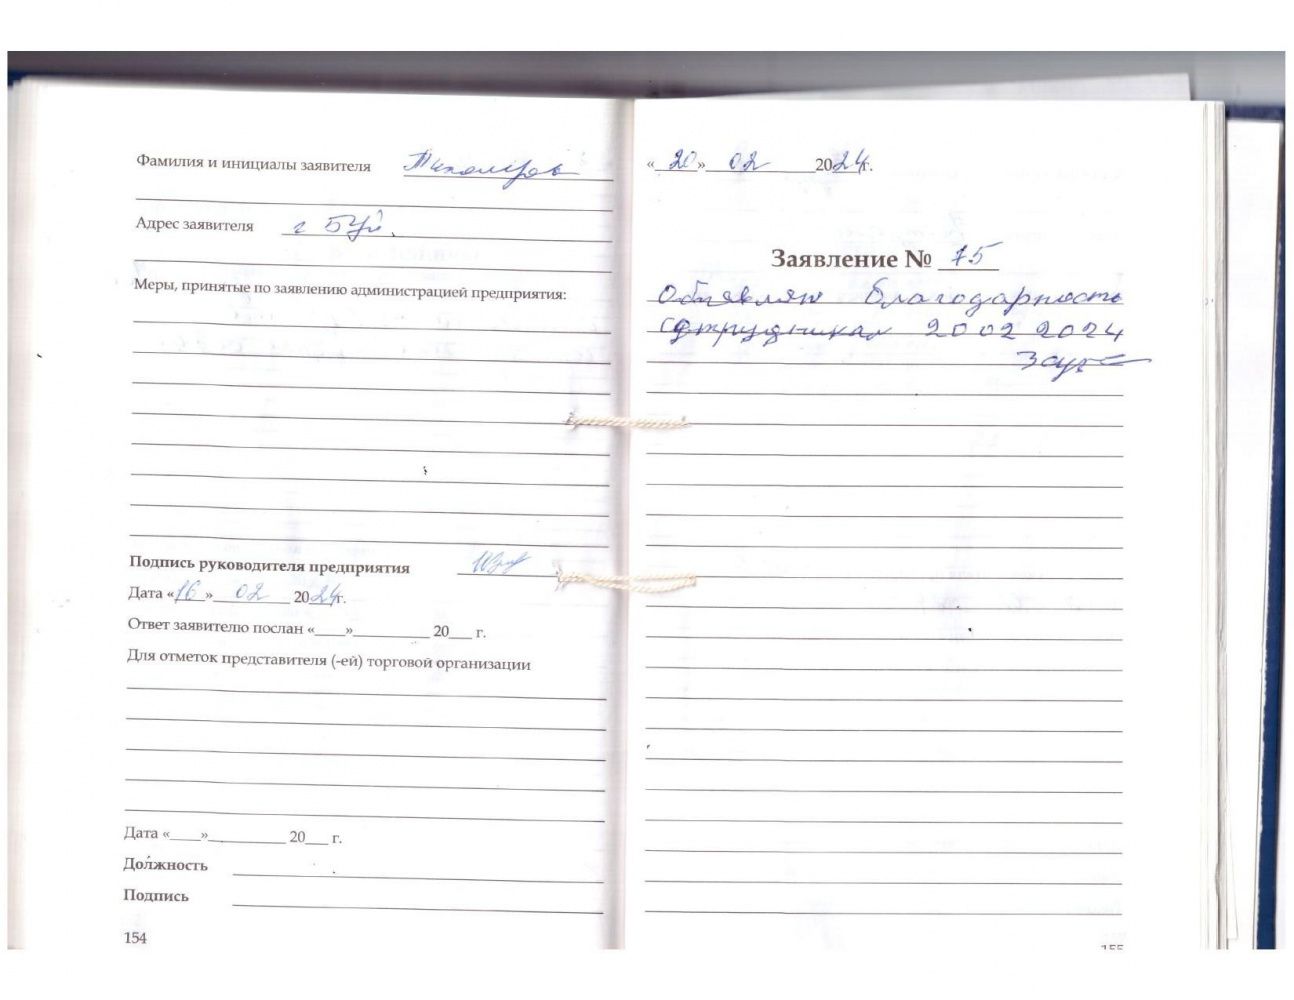 Фамилия и инициалы заявителя
Адрес заявителя г Буй.
Меры, принятые по заявлению администрацией предприятия:
Подпись руководителя предприятия
Дата «16» 02 2024г.
Ответ заявителю послан «___»_________ 20__ г.
Для отметок представителя (-ей) торговой организации
Дата «___»_________ 20__ г.
Должность
Подпись
154
«20» 02 2024г.
Заявление № 75
Объявляю благодарность
сотрудникам 20 02 2024
155